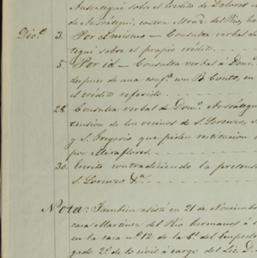 Ausátegui sobre el credito de Dolores
de Ausátegui, contra Man.l del Rio,
Dic.e 3. Por el mismo — Consulta verbal de
tegui sobre el propio crédito.
5. Por id — Consulta verbal á Dom.o
despues de una conf.a con B. Couto, en
el crédito referido.
28. Consulta verbal de Dom.o Ausátegui
tension de los vecinos de S. Lorenzo,
y S. Gregorio que piden restitucion
por Miraflores.
30. Escrito contradiciendo la preten
S. Lorenzo &a.
Nota: Tambien asistí en 21 de Noviembre
casa Martinez del Rio hermanos á
en la casa n.o 12 de la C.e del
gado 2.o de lo civil á cargo del Lic. D.